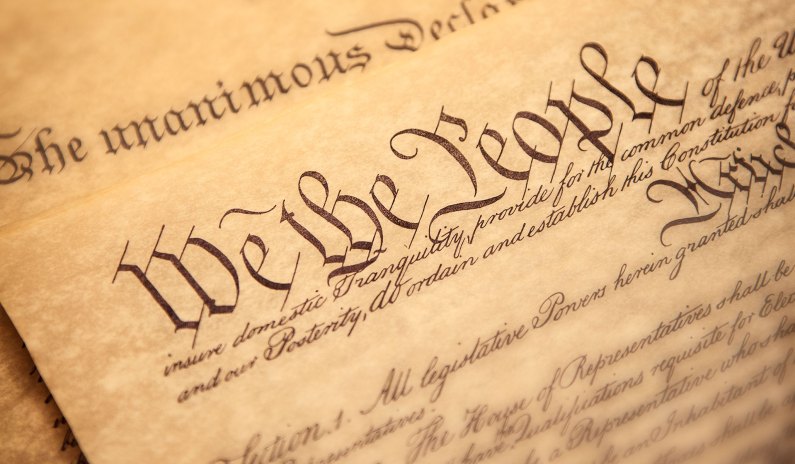 The unanimous Decla
We the People of the U
insure domestic Tranquility, provide for the common defence, p
and our Posterity, do ordain and establish this Constitution fo
Articl
Section. 1. All legislative Powers herein granted shall
Representatives.
The House of Representatives shall be
have Qualifications requisite for Elec
a Representative who sha
an Inhabitant of